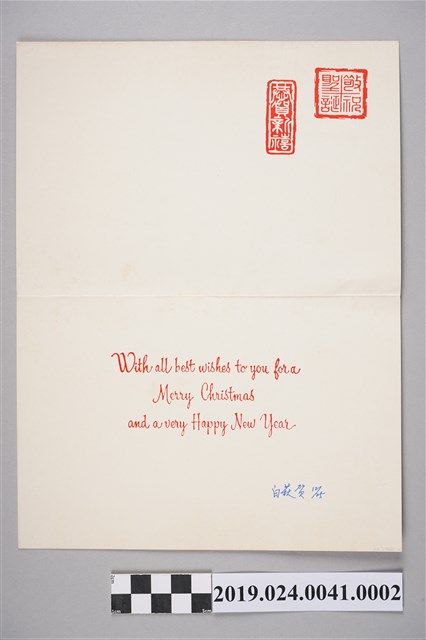 敬祝
聖誕
恭賀新禧
With all best wishes to you for a
Merry Christmas
and a very Happy New Year
白萩賀
2019.024.0041.0002